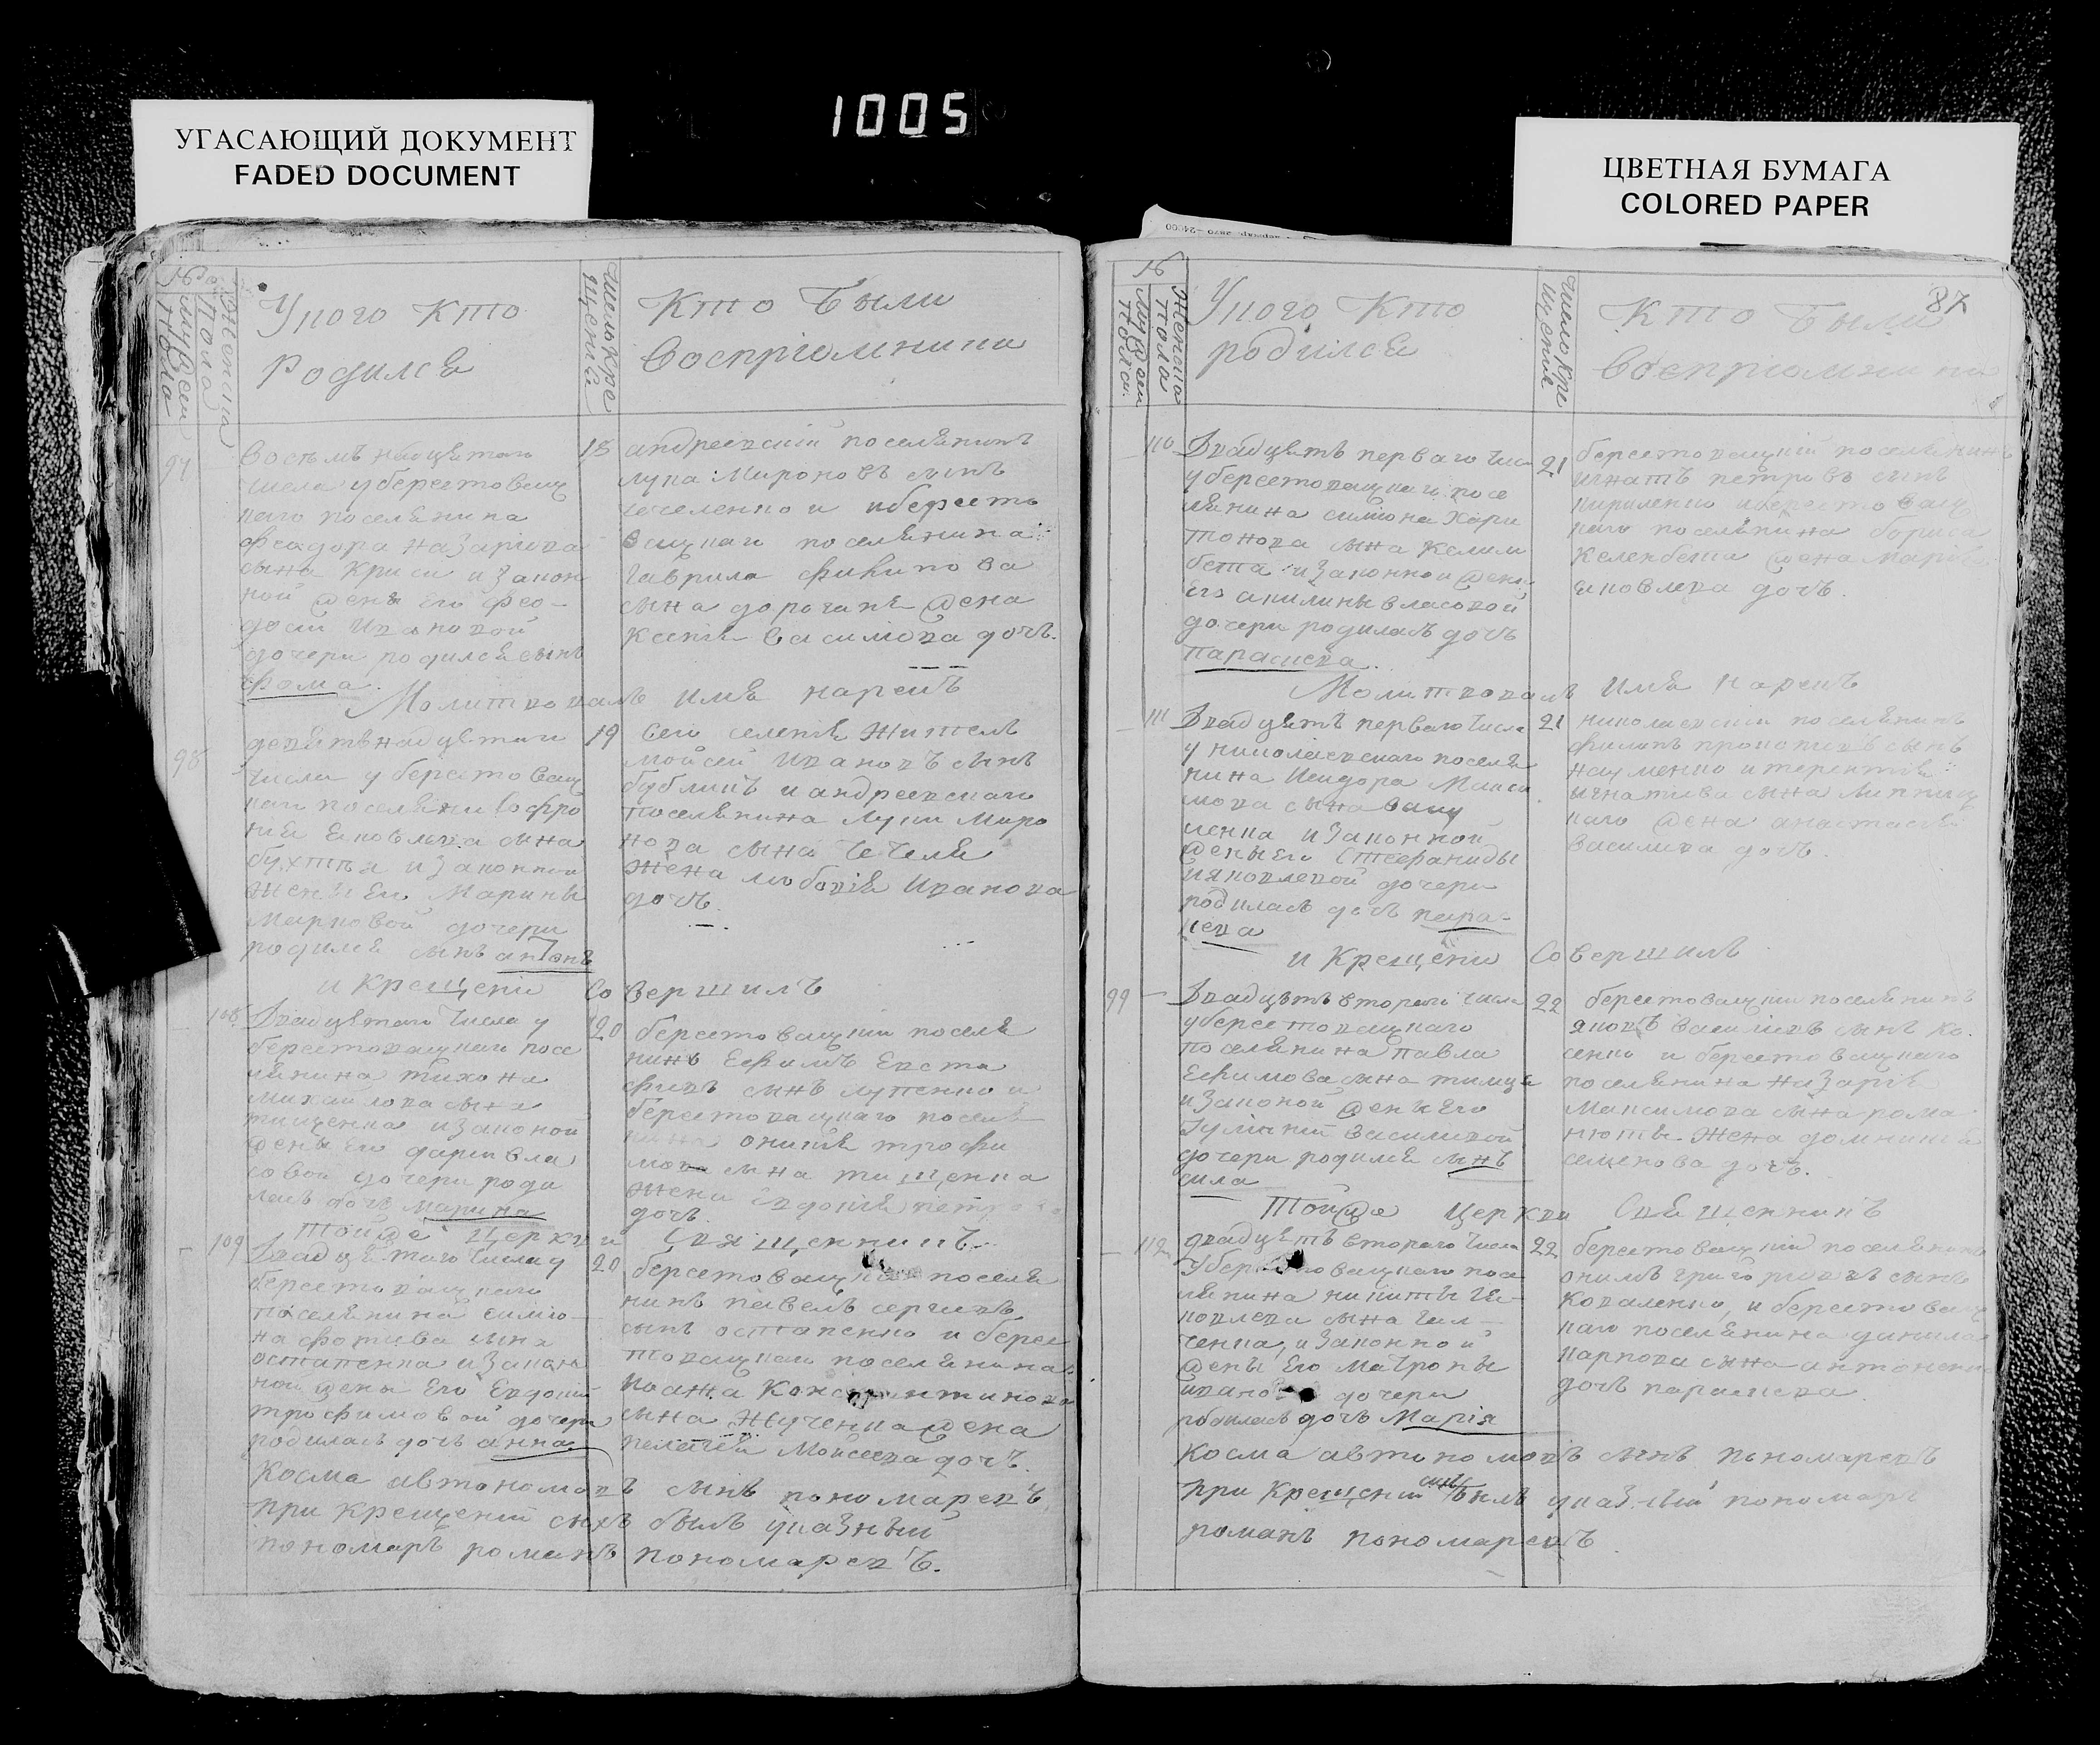 1005
УГАСАЮЩИЙ ДОКУМЕНТ
FADED DOCUMENT
ЦВЕТНАЯ БУМАГА
COLORED PAPER
№
Мужеск
Пола
Женска
Пола
Уного Кто
Родился
Число Кре
щения
Кто Были
Восприомники
97
Восемьнадцетого
числа уберестоващ
наго поселянина
феодора назариова
сына Криси изакон
ной жены Его фео-
досии Ивановой
дочери родился сынъ
фома.
18
андреевский поселянинъ
лука Мироновъ сынъ
чечеленко и ибересто
ващнаго поселянина
гаврила
сына дорогане жена
ксения василиова дочь.
Молитвовалъ имя нарекъ
98
девятьнадцетого
числа уберестоващ
наго поселянина софро
ния Яковлева сына
изаконной
жены Его Марины
Марковой дочери
родился сынъ антонъ
19
Сего селения житель
мойсей Ивановъ сынъ
бубликъ и андреевскаго
поселянина Луки Миро
нова сына Чечеля
жена любовия Иванова
дочь.
и Крещени Совершилъ
108
Двадцетаго числа у
берестоващнаго посе
лянина тихона
михаилова сына
тищенка изаконой
жены Его дарии вла
совой дочери роди
лась дочь марина
20
берестоващкий поселя
нинъ Ефимъ Евста
фиевъ сынъ лупенко и
берестоващнаго поселя
нина оникия трофи
мова сына тищенка
жена Евдокия петрова
дочь.
тойже Церкви Священникъ
109
Двадцетаго числа у
берестоващнаго
поселянина симио
на фотиева сына
остапенка изакон
ной жены Его Евдокии
трофимовой дочери
родилась дочь анна
20
берестоващкий поселя
нинъ павелъ сергиевъ
сынъ остапенко и берес
товащнаго поселянина
Иоана Константинова
сына жученка жена
пелагея Мойсеева дочь.
Косма автономовъ сынъ пономаревъ
при крещении сихъ былъ указный
пономаръ романъ пономаревъ.
87
№
Мужеск
Пола
Женска
Пола
Уного Кто
родился
Число Кре
щения
Кто Были
Восприомники
110
Двадцеть перваго числа
уберестоващнаго посе
лянина симиона Хари
тонова сына Келем
бета изаконной жены
Его акилины власовой
дочери родилась дочь
параскева.
21
берестоващкий поселянинъ
игнатъ петровъ сынъ
кириленко иберестоващ
наго поселянина бориса
Келембета жена Мария
яковлева дочь.
Молитвовалъ Имя Нарекъ
111
Двадцеть перваго числа
у николаевскаго поселя
нина Исидора Макси
мова сына ващ
ченка изаконной
жены Его Стефаниды
Яковлевой дочери
родилась дочь пара-
скева
21
николаевский поселянинъ
филипъ прокопиевъ сынъ
науменко и терентия
игнатиева сына
жена анастасия
Василиева дочь.
и Крещени Совершилъ
99
Двадцеть втораго числа
уберестоващнаго
поселянина павла
Ефимова сына
изаконой жены Его
василиевой
дочери родился сынъ
сила
22
берестоващкий поселянинъ
яковъ василиевъ сынъ ко
сенко и берестоващнаго
поселянина назария
Максимова сына рома
нюты жена домникия
семенова дочь.
Тойже Церкви Священникъ
112
двадцеть втораго числа
Уберестоващнаго посе
лянина никиты Яе
ковлева сына
ченка, изаконной
жены Его Матроны
ивановой дочери
родилась дочь Мария
22
берестоващкий поселянинъ
григориевъ сынъ
Коваленко, и берестоващ
наго поселянина данила
карпова сына антоненка
дочь параскева.
косма автономовъ сынъ пономаревъ
при Крещении сихъ былъ указный пономаръ
романъ пономаревъ.